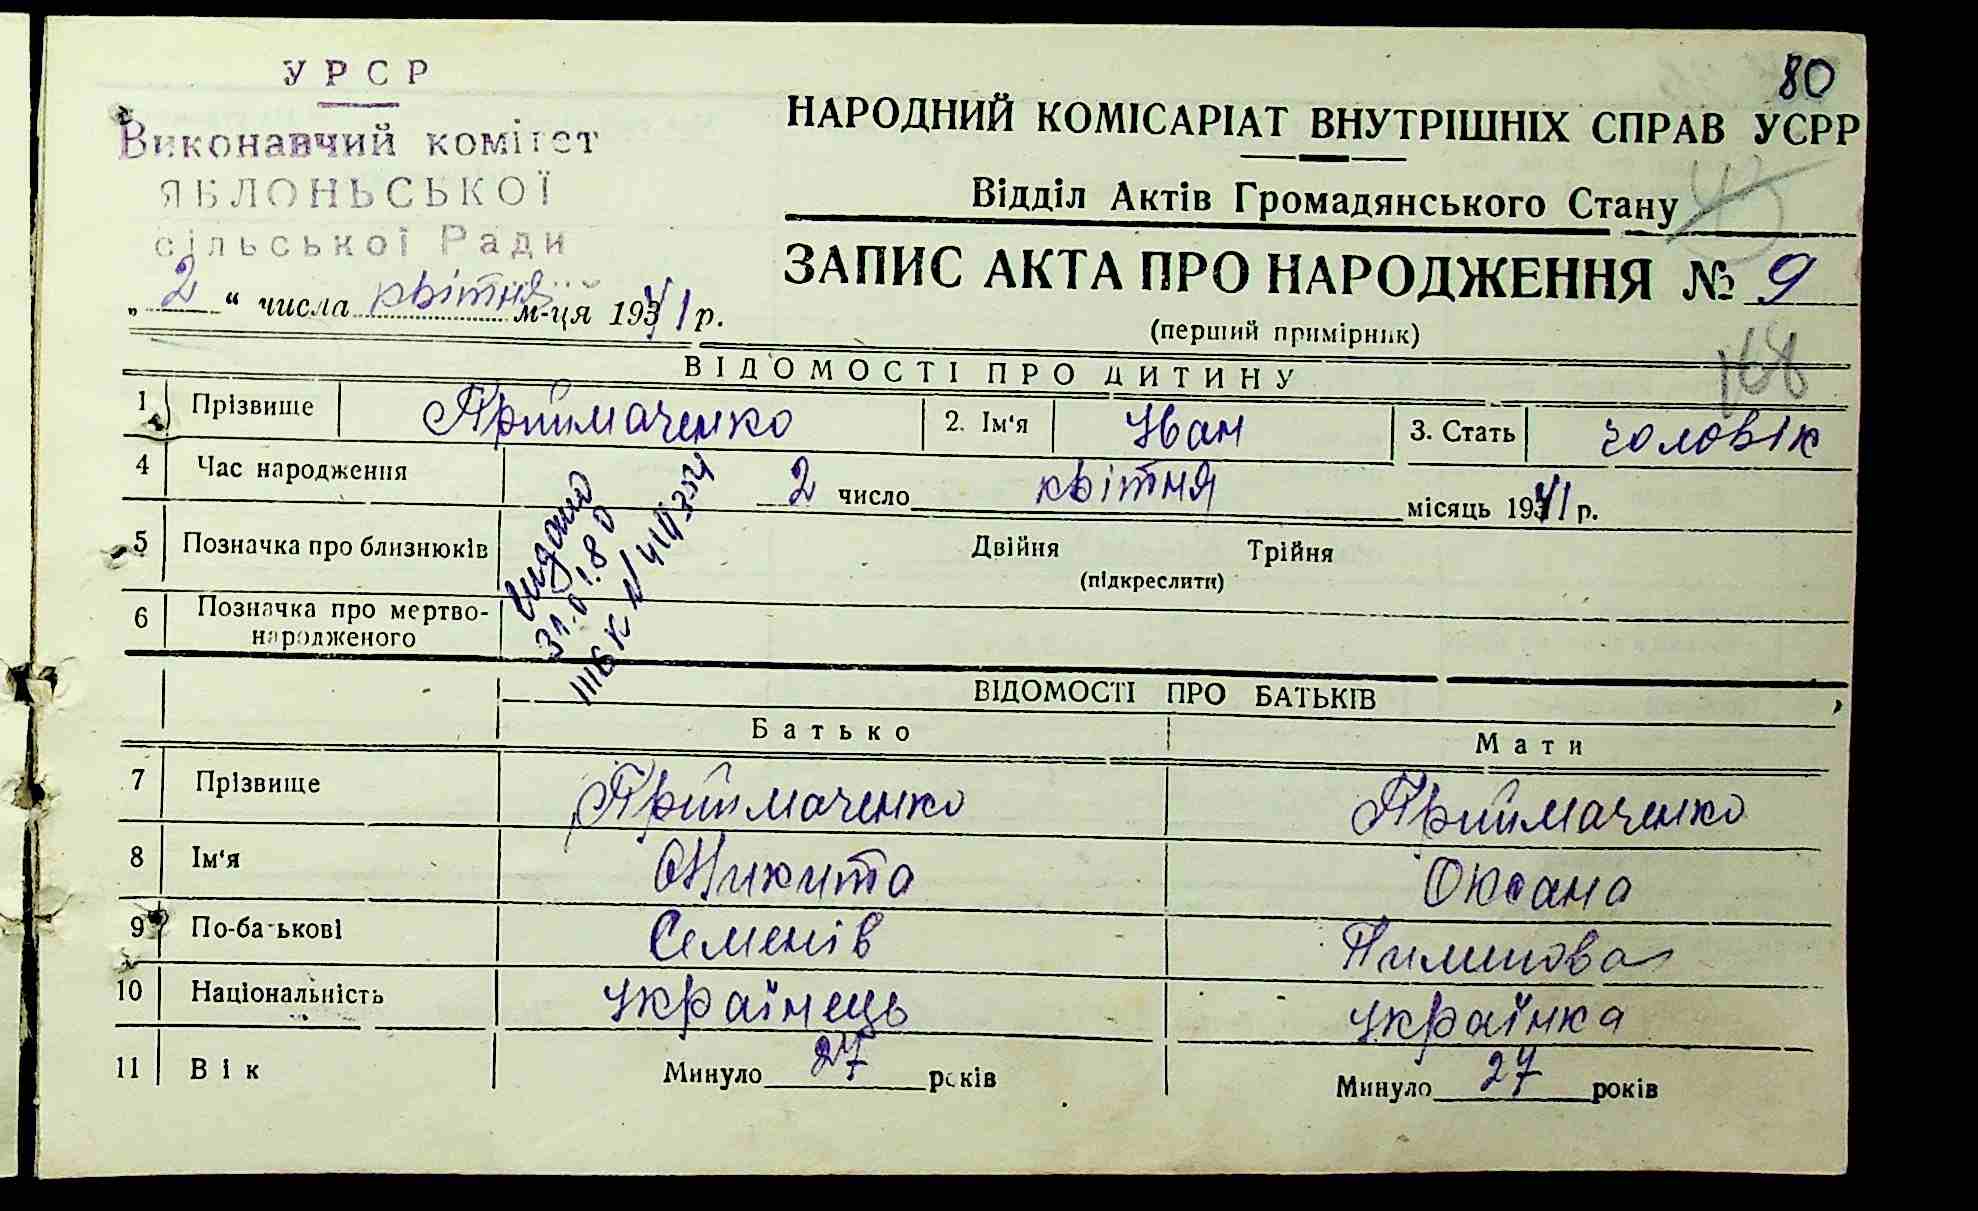 80
УРСР
Виконавчий комітет
ЯБЛОНЬСЬКОЇ
сільської Ради
„2“ числа квітня м-ця 1941 р.
НАРОДНИЙ КОМІСАРІАТ ВНУТРІШНІХ СПРАВ УСРР
Відділ Актів Громадянського Стану
ЗАПИС АКТА ПРО НАРОДЖЕННЯ № 9
(перший примірник)
168
ВІДОМОСТІ ПРО ДИТИНУ
1 Прізвище Приймаченко 2. Ім'я Іван 3. Стать чоловік
4 Час народження 2 число квітня місяць 1941 р.
5 Позначка про близнюків Двійня Трійня
(підкреслити)
6 Позначка про мертво-
народженого
видано
31.01.80
ВІДОМОСТІ ПРО БАТЬКІВ
Батько Мати
7 Прізвище Приймаченко Приймаченко
8 Ім'я Никита Оксана
9 По-батькові Семенів Пименова
10 Національність українець українка
11 Вік Минуло 27 років Минуло 27 років